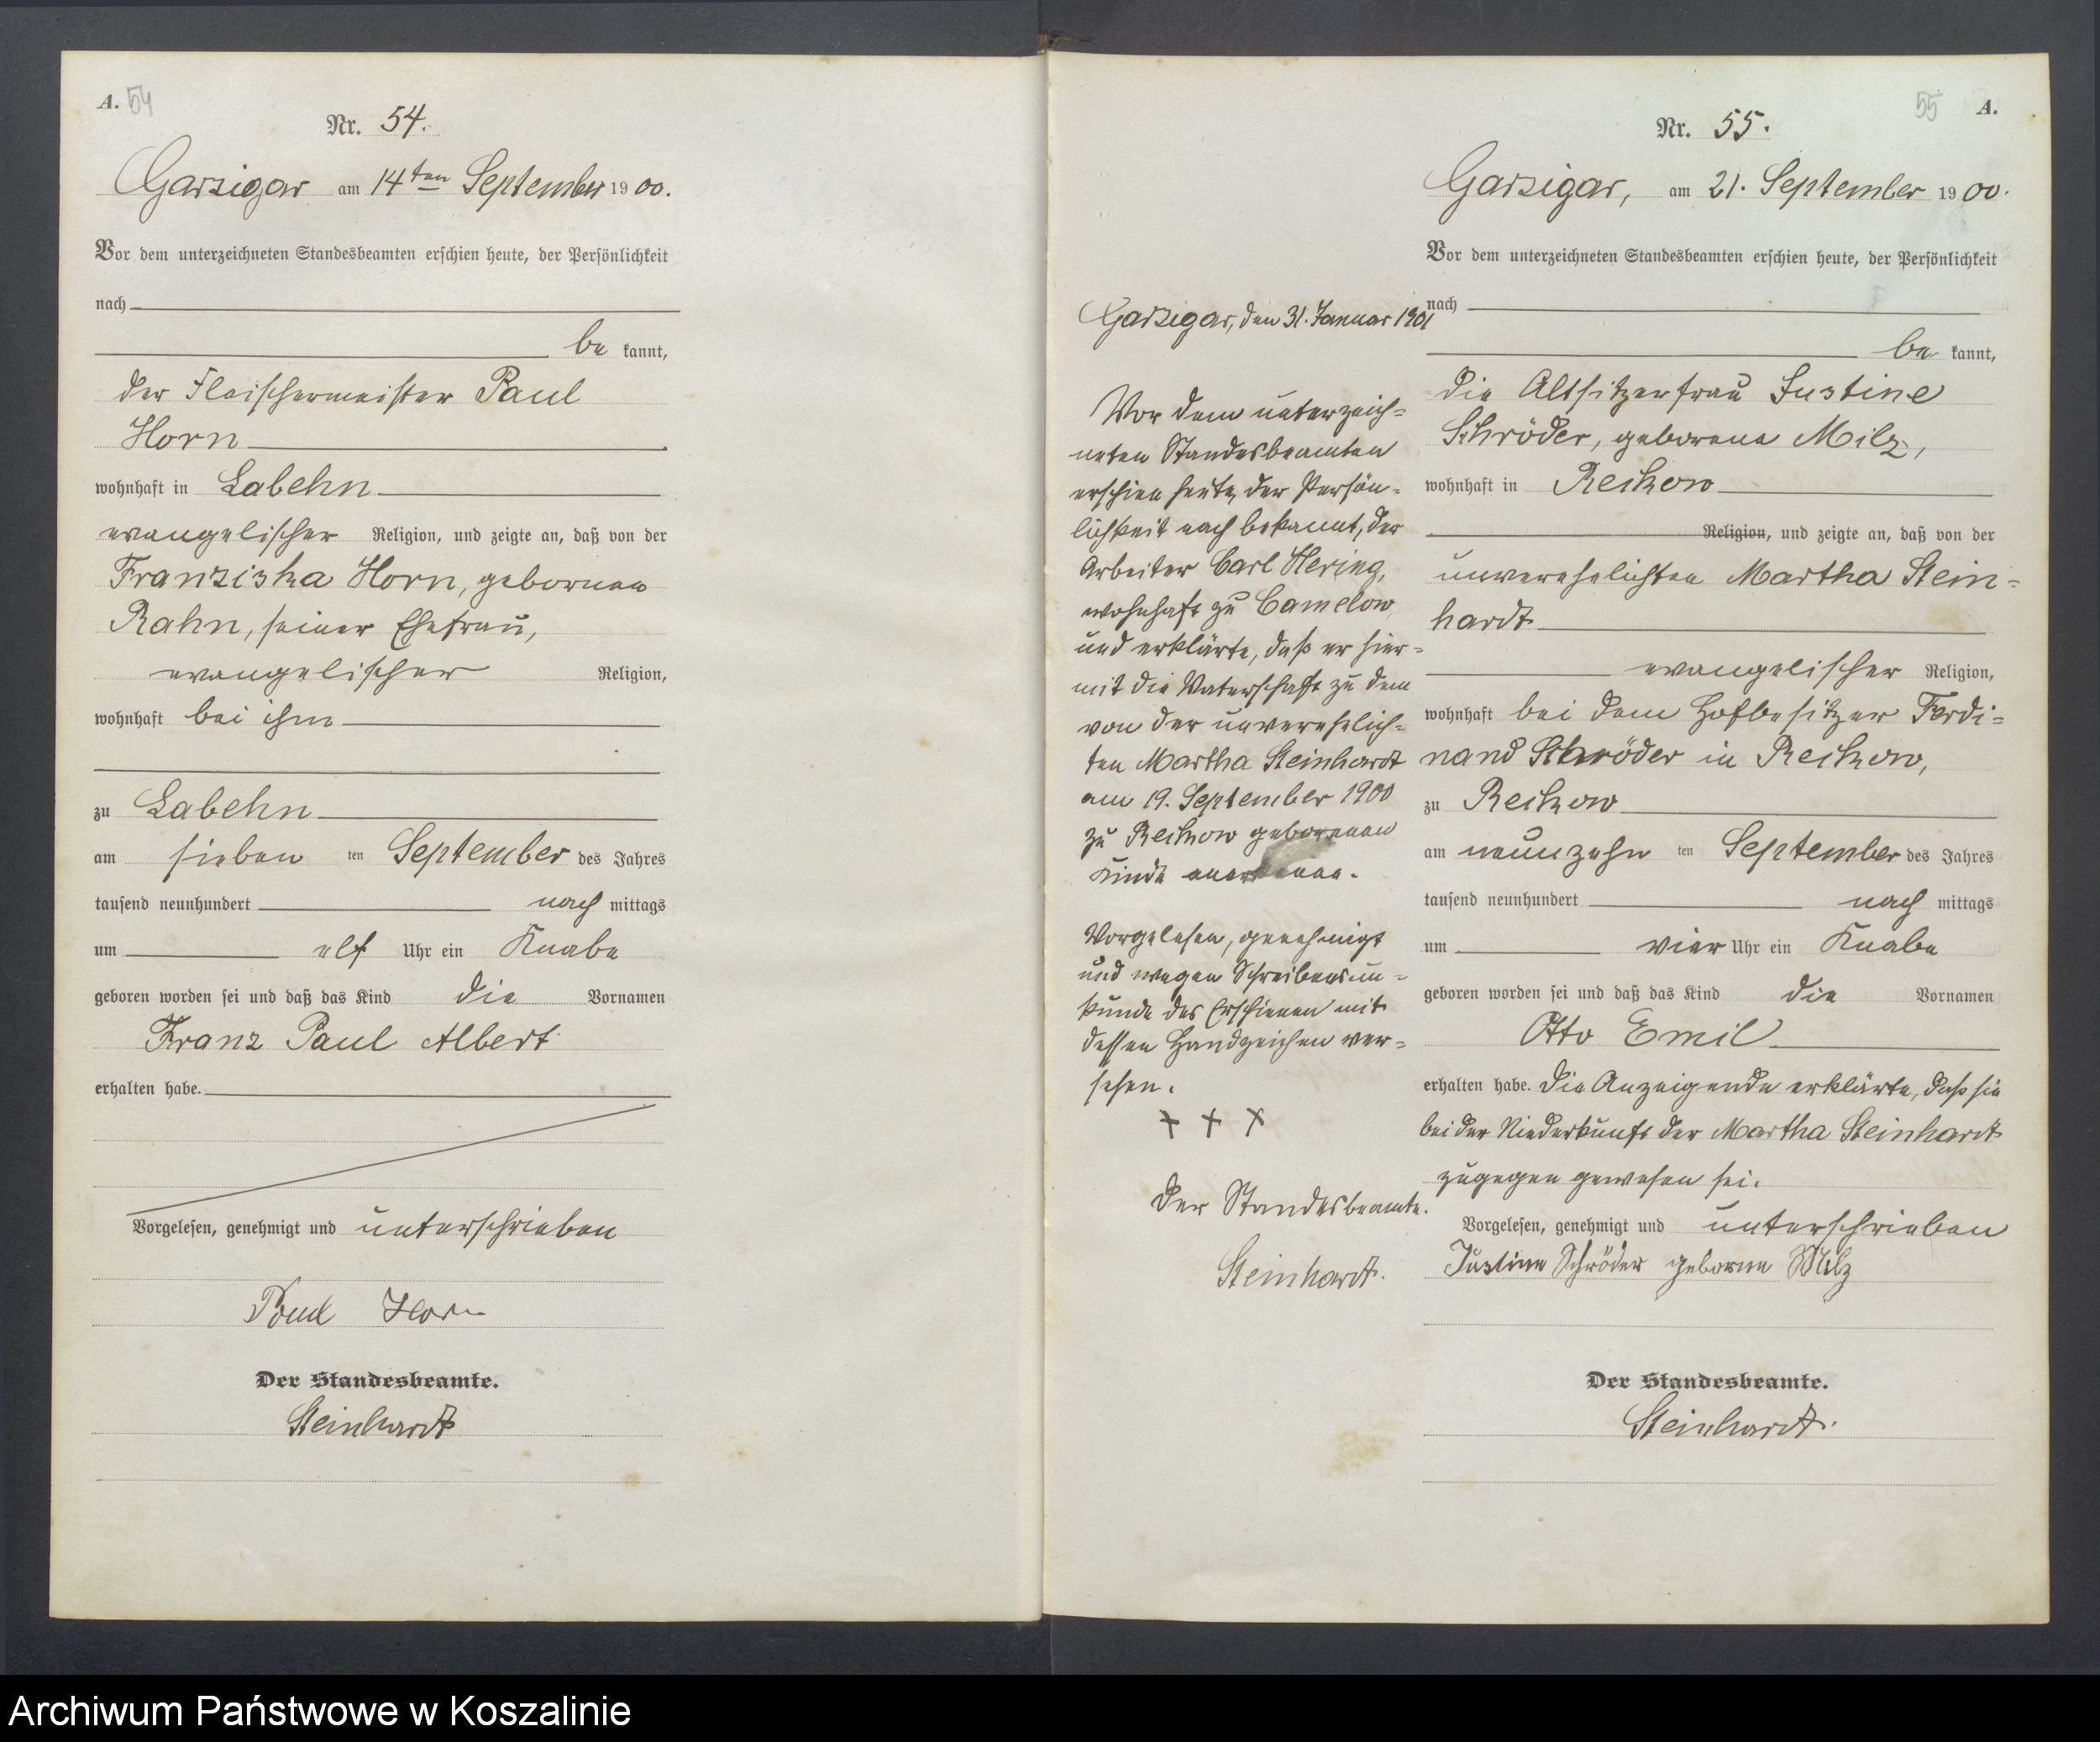 A. 54
Nr. 54.
Garzigar am 14ten September 1900.
Vor dem unterzeichneten Standesbeamten erschien heute, der Persönlichkeit
nach
be kannt,
der Fleischermeister Paul
Horn
wohnhaft in Labehn
evangelischer Religion, und zeigte an, daß von der
Franziska Horn, gebornen
Rahn, seiner Ehefrau,
evangelischer Religion,
wohnhaft bei ihm
zu Labehn
am sieben ten September des Jahres
tausend neunhundert nach mittags
um elf Uhr ein Knabe
geboren worden sei und daß das Kind die Vornamen
Franz Paul Albert
erhalten habe.
Vorgelesen, genehmigt und unterschrieben
Paul Horn
Der Standesbeamte.
Steinhardt
Garzigar, den 31. Januar 1901
Vor dem unterzeich=
neten Standesbeamten
erschien heute, der Persön=
lichkeit nach bekannt, der
Arbeiter Carl Hering,
wohnhaft zu Camelow
und erklärte, daß er hier=
mit die Vaterschaft zu dem
von der unverehelich=
ten Martha Steinhardt
am 19. September 1900
zu Reckow geborenen
Kinde anerkenne.
Vorgelesen, genehmigt
und wegen Schreibensun=
kunde des Erschienen mit
dessen Handzeichen ver=
sehen.
+ + +
Der Standesbeamte.
Steinhardt.
55 A.
Nr. 55.
Garzigar, am 21. September 1900.
Vor dem unterzeichneten Standesbeamten erschien heute, der Persönlichkeit
nach
be kannt,
die Altsitzerfrau Justine
Schröder, geborene Milz,
wohnhaft in Reckow
Religion, und zeigte an, daß von der
unverehelichten Martha Stein=
hardt
evangelischer Religion,
wohnhaft bei dem Hofbesitzer Ferdi=
nand Schröder in Reckow,
zu Reckow
am neunzehn ten September des Jahres
tausend neunhundert nach mittags
um vier Uhr ein Knabe
geboren worden sei und daß das Kind die Vornamen
Otto Emil
erhalten habe. Die Anzeigende erklärte, daß sie
bei der Niederkunft der Martha Steinhardt
zugegen gewesen sei.
Vorgelesen, genehmigt und unterschrieben
Justine Schröder geborne Milz
Der Standesbeamte.
Steinhardt.
Archiwum Państwowe w Koszalinie